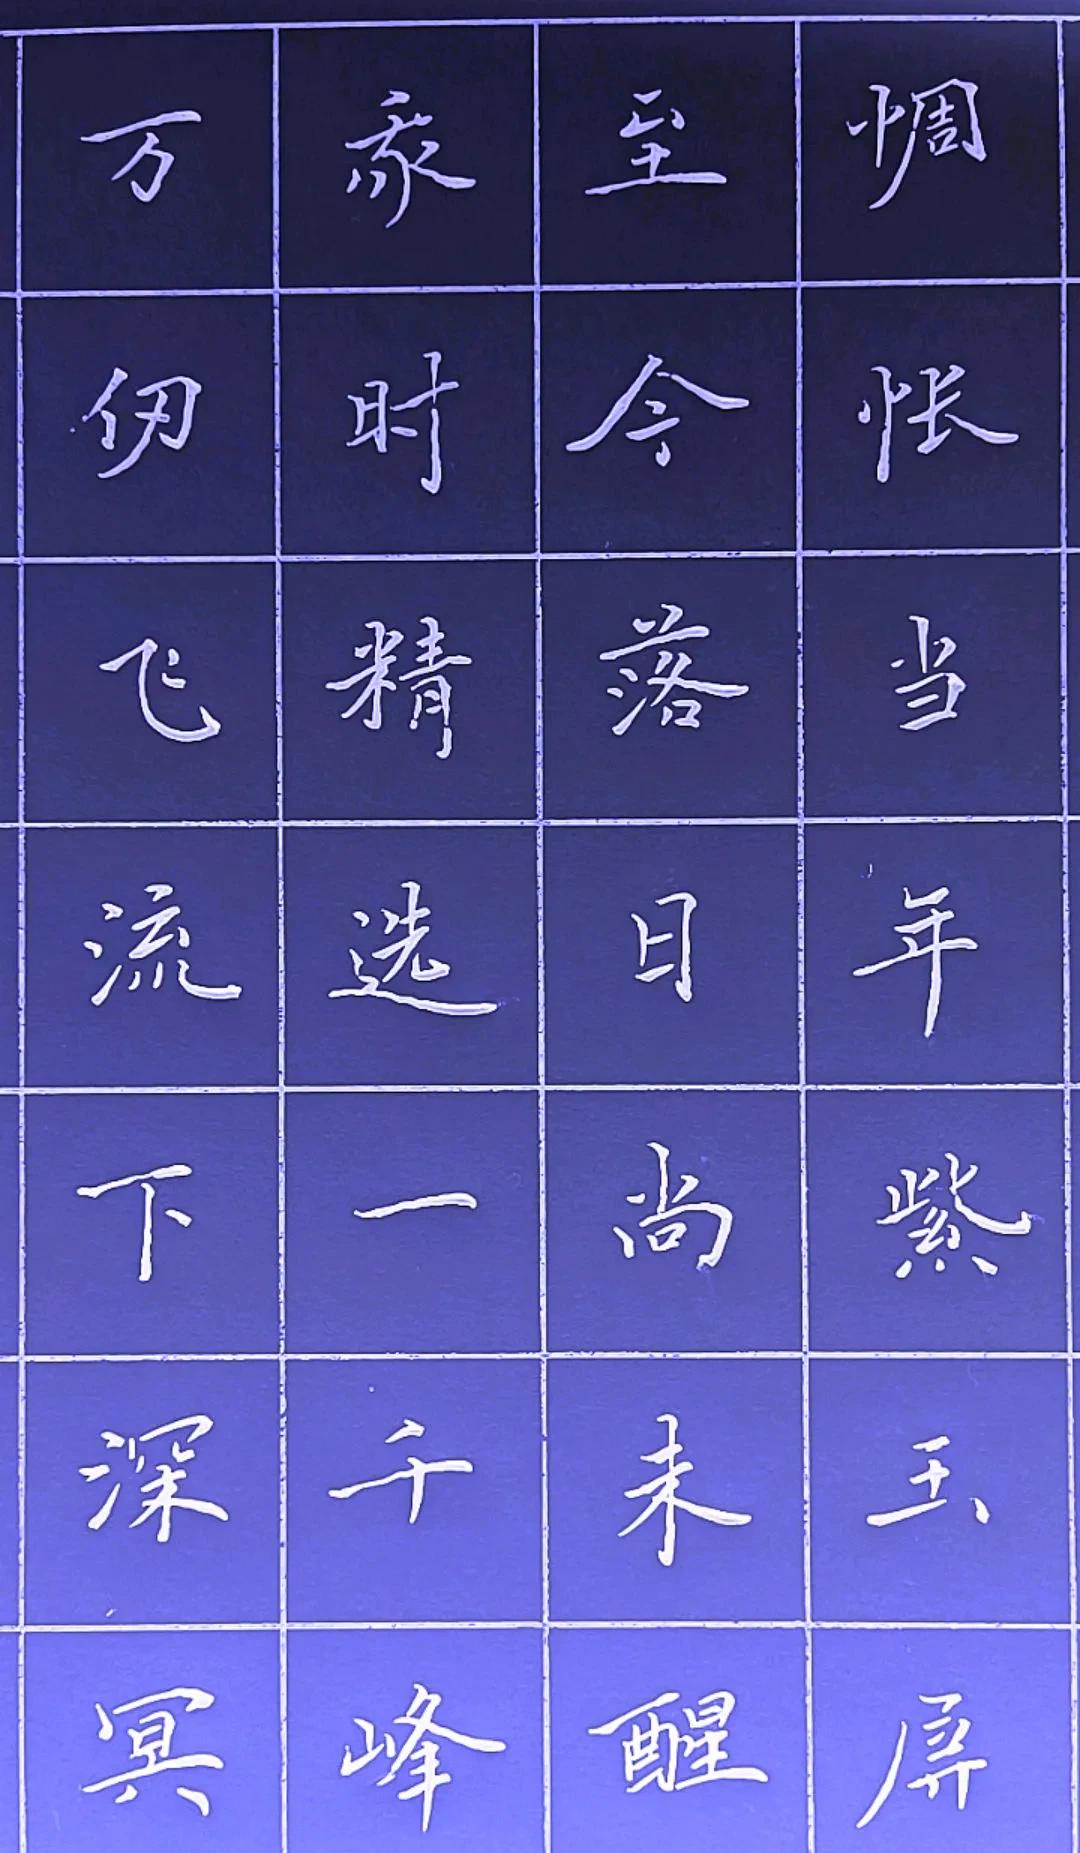 惆怅当年紫玉屏
至今落日尚未醒
时精选一千峰
万仞飞流下深冥